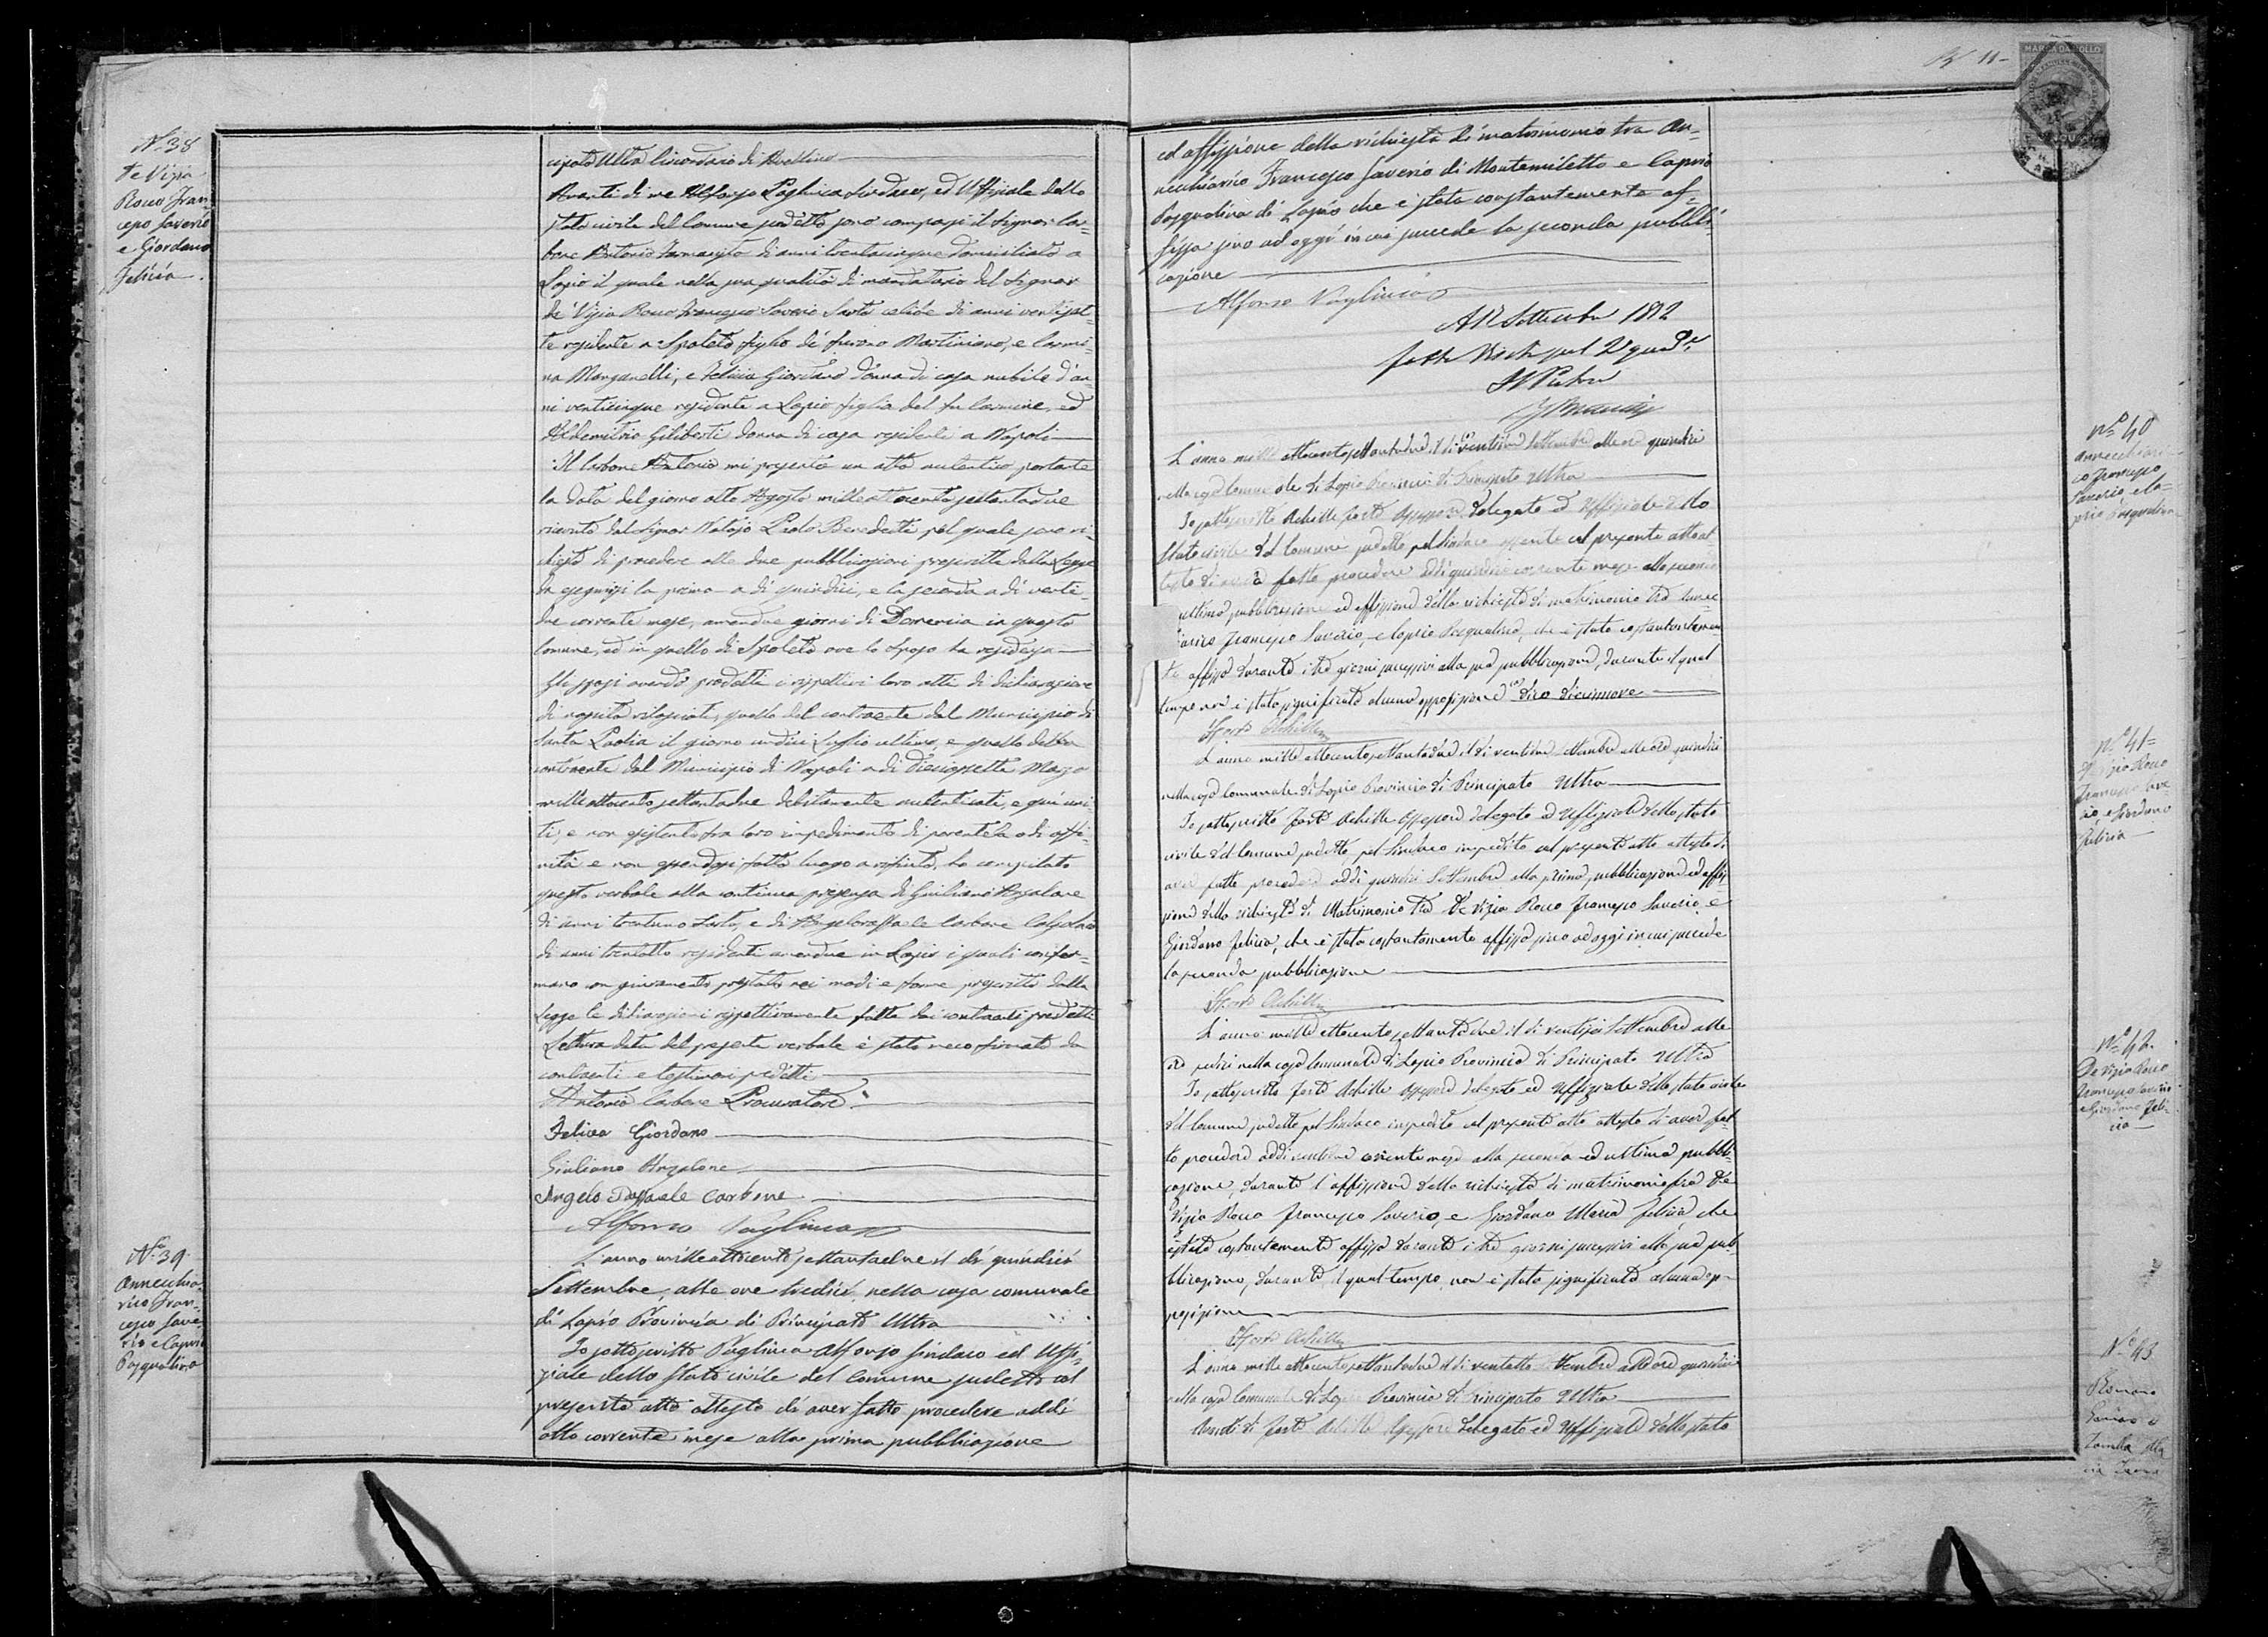 N. 38
De Vizia
Rocco Fran=
cesco Saverio
e Giordano
Felicia.
cipato Ultra Circondario di Avellino
Avanti di me Alfonso Pagliuca Sindaco, ed Uffiziale dello
Stato civile del Comune sudetto sono comparsi il Signor Car=
bone Antonio Farmacista di anni trentacinque domiciliato a
Lapio il quale nella sua qualità di mandatario del Signor
De Vizia Rocco Francesco Saverio Sarto celibe di anni ventiset=
te residente a Spoleto figlio di Martiniano, e Carmi=
na Manganelli, e Felicia Giordano donna di casa nubile d'an=
ni venticinque residente a Lapio figlia del fu Carmine, ed
Giliberti donna di casa residenti a Napoli
Il Carbone Antonio mi presenta un atto autentico portante
la data del giorno otto Agosto milleottocentosettantadue
ricevuto dal Signor Notajo Paolo Benedetti pel quale sono ri=
chiesto di procedere alle due pubblicazioni prescritte dalla Legge
da eseguirsi la prima a dì quindici, e la seconda a dì venti=
due corrente mese, amendue giorni di Domenica in questo
Comune, ed in quello di Spoleto ove lo Sposo ha residenza
Gli sposi avendo prodotti i rispettivi loro atti di dichiarazione
di nascita rilasciati, quello del contraente dal Municipio di
Santa Paolina il giorno undici Luglio ultimo, e quello della
contraente dal Municipio di Napoli a dì diciassette Marzo
milleottocentosettantadue debitamente autenticati, e qui uni=
ti, e non esistendo fra loro impedimento di parentela o di affi=
nità e non essendosi fatto luogo a rifiuto, ho compilato
questo verbale alla continua presenza di Giuliano Anzalone
di anni trentuno Sarto, e di Angeloraffaele Carbone Calzolaio
di anni trentotto residenti amendue in Lapio i quali confer=
mano con giuramento prestato nei modi e forme prescritti dalla
Legge le dichiarazioni rispettivamente fatte dai contraenti predetti
Lettura data del presente verbale è stato meco firmato da
contraenti e testimoni predetti
Antonio Carbone Procuratore
Felicia Giordano
Giuliano Anzalone
Angelo Raffaele Carbone
Alfonso Pagliuca
N.º 39.
Annecchia=
rico Fran=
cesco Save=
rio e Caprio
Pasqualina
L'anno milleottocentosettantadue il dì quindici
Settembre, alle ore tredici nella casa comunale
di Lapio Provincia di Principato Ultra
Io sottoscritto Pagliuca Alfonso Sindaco ed Uffi=
ziale dello Stato civile del Comune sudetto col
presente atto attesto di aver fatto procedere addì
otto corrente mese alla prima pubblicazione
N 11
MARCA DA BOLLO
ed affissione della richiesta di matrimonio tra An=
necchiarico Francesco Saverio di Montemiletto e Caprio
Pasqualina di Lapio che è stata constantemente af=
fissa sino ad oggi in cui succede la seconda pubbli=
cazione
Alfonso Pagliuca
A 17 Settembre 1872
Il Pretore
Nº 40
Annecchiari=
co Francesco
Saverio, e Ca=
prio Pasqualina
L'anno mille ottocentosettantadue il dì ventidue Settembre alle ore quindici
nella casa Comunale di Lapio Provincia di Principato Ultra
Io sottoscritto Achille Forte Assessore delegato ed Uffiziale dello
Stato civile del Comune sudetto pel Sindaco assente col presente atto at=
testo di aver fatto procedere addì quindici corrente mese alla seconda
ultima pubblicazione ed affissione della richiesta di matrimonio tra Annec=
chiarico Francesco Saverio, e Caprio Pasqualina, che è stata costantemen=
te affissa durante i tre giorni successivi alla sua pubblicazione, durante il qual
tempo non è stata significata alcuna opposizione dico diecinnove
Forte Achille
Nº 41=
De Vizia Rocco
Francesco Save=
rio, e Giordano
Felicia
L'anno mille ottocentosettantadue il dì ventidue Settembre alle ore quindici
nella casa Comunale di Lapio Provincia di Principato Ultra
Io sottoscritto Forte Achille Assessore delegato ed Uffiziale dello stato
civile del Comune sudetto, pel Sindaco impedito col presente atto attesto di
aver fatto procedere addì quindici Settembre alla prima pubblicazione ed affis=
sione della richiesta di Matrimonio tra De Vizia Rocco Francesco Saverio, e
Giordano Felicia, che è stata costantemente affissa sino ad oggi in cui succede
la seconda pubblicazione
Forte Achille
Nº 42.
De Vizia Rocco
Francesco Saverio
e Giordano Feli=
cia
L'anno mille ottocentosettantadue il dì ventisei Settembre alle
ore sedici nella casa Comunale di Lapio Provincia di Principato Ultra
Io sottoscritto Forte Achille Assessore delegato ed Uffiziale dello stato civile
del Comune sudetto pel Sindaco impedito col presente atto attesto di aver fat=
to procedere addì ventidue corrente mese alla seconda ed ultima pubbli=
cazione, durante l'affissione della richiesta di matrimonio fra De
Vizia Rocco Francesco Saverio, e Giordano Maria Felicia, che
è stata costantemente affissa durante i tre giorni successivi alla sua pub=
blicazione, durante il qual tempo non è stata significata alcuna op=
posizione
Forte Achille
Nº 43
Romano
L'anno mille ottocentosettantadue il dì ventotto Settembre alle ore quindici
nella casa Comunale di Lapio Provincia di Principato Ultra
Avanti di Forte Achille Assessore delegato ed Uffiziale dello stato